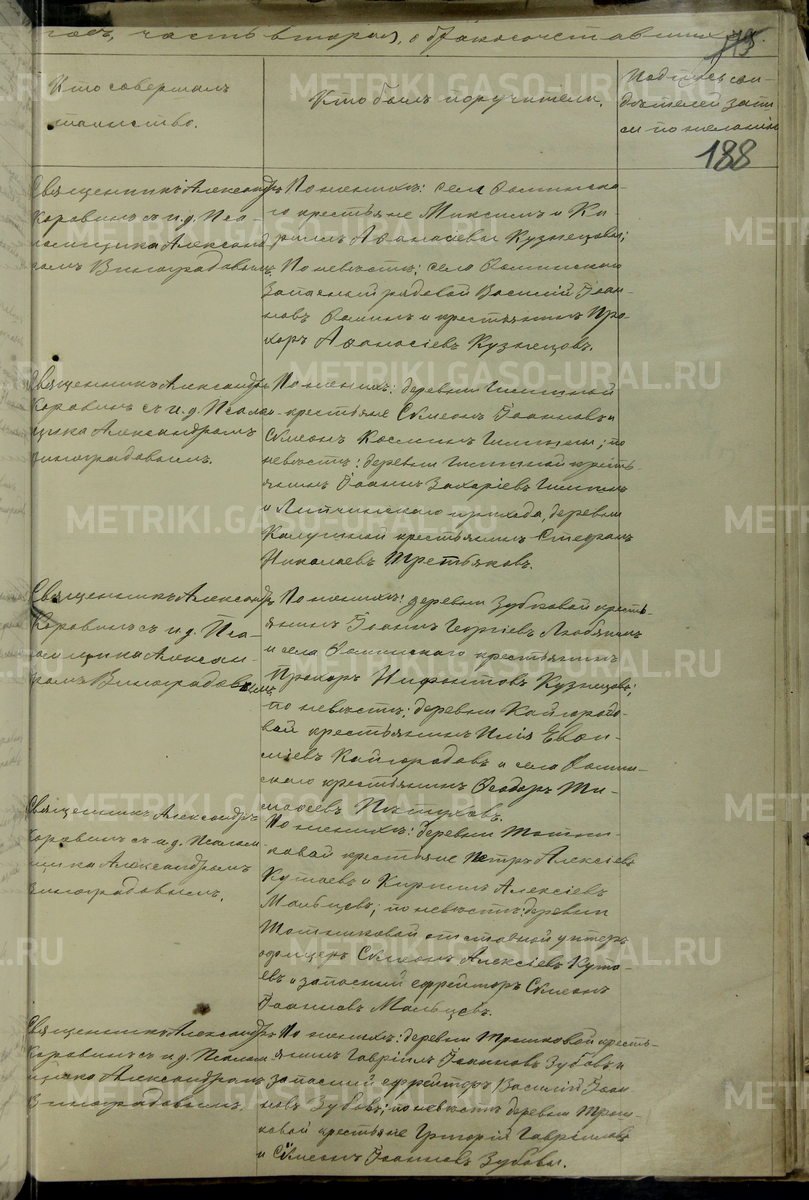 годъ, часть вторая, о бракосочетавшихся
113
Кто совершалъ
таинство.
Кто былъ поручители.
Подпись сви-
дѣтелей запи
си по желанію
188
Священникъ Александръ
Коровинъ съ и.д. Пса-
ломщика Александ
ромъ Виноградовымъ.
По женихѣ: села Фоминска-
го крестьяне Максимъ и Ки-
риллъ Аѳанасіевы Кузнецовы;
По невѣстѣ: села Фоминскаго
запасный рядовой Василій Іоан-
новъ Фоминъ и крестьянинъ Про
хоръ Аѳанасіевъ Кузнецовъ.
Священникъ Александръ
Коровинъ съ и.д. Псалом
щика Александромъ
Виноградовымъ.
По женихѣ: деревни
крестьяне Сѵмеонъ Іоанновъ и
Сѵмеонъ Косминъ; по
невѣстѣ: деревни кресть-
янинъ Іоаннъ Захаріевъ
и Липчинскаго прихода, деревни
Калугиной крестьянинъ Стефанъ
Николаевъ Третьяковъ.
Священникъ Александръ
Коровинъ съ и.д. Пса-
ломщика Алексан-
ромъ Виноградовымъ.
По женихѣ: деревни Зубковой кресть
янинъ Іоаннъ Георгіевъ
и села Фоминскаго крестьянинъ
Прохоръ Нифонтовъ Кузнецовъ;
по невѣстѣ: деревни Кайгородо-
вой крестьянинъ Илія Евѳи-
міевъ Кайгородовъ и села Фомин-
скаго крестьянинъ Ѳеодоръ Ти-
моѳеевъ Пѣтуховъ.
Священникъ Александръ
Коровинъ съ и.д. Псалом
щика Александромъ
Виноградовымъ.
По женихѣ: деревни
ковой крестьяне Петръ Алексіевъ
Кутаевъ и Кириллъ Алексіевъ
Мальцевъ; по невѣстѣ: деревни
отставной унтеръ
офицеръ Сѵмеонъ Алексіевъ Кута-
евъ и запасный ефрейторъ Сѵмеонъ
Іоанновъ Мальцевъ.
Священникъ Александръ
Коровинъ съ и.д. Псалом
щика Александромъ
Виноградовымъ.
По женихѣ: деревни Трошковой кресть-
янинъ Гавріилъ Іоанновъ Зубовъ и
запасный ефрейторъ Василій Іоан
новъ Зубовъ; по невѣстѣ деревни Трош-
ковой крестьяне Григорій Гавріиловъ
и Сѵмеонъ Іоанновъ Зубовы.
METRIKI.GASO-URAL.RU